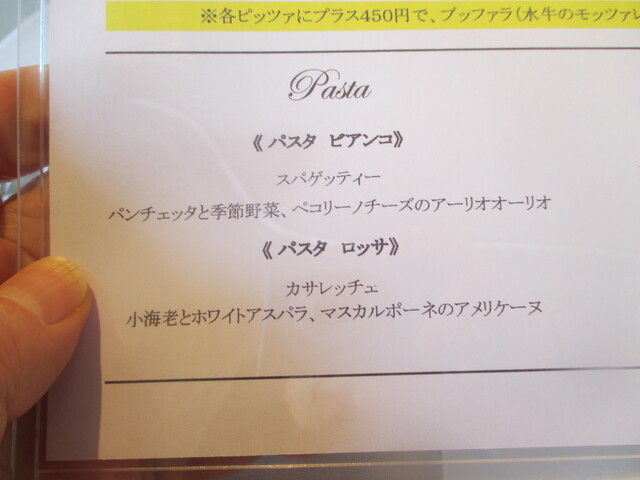 ※各ピッツァにプラス450円で、ブッファラ(水牛のモッツァレ
Pasta
《 パスタ ビアンコ》
スパゲッティー
パンチェッタと季節野菜、ペコリーノチーズのアーリオオーリオ
《 パスタ ロッサ》
カサレッチェ
小海老とホワイトアスパラ、マスカルポーネのアメリケーヌ